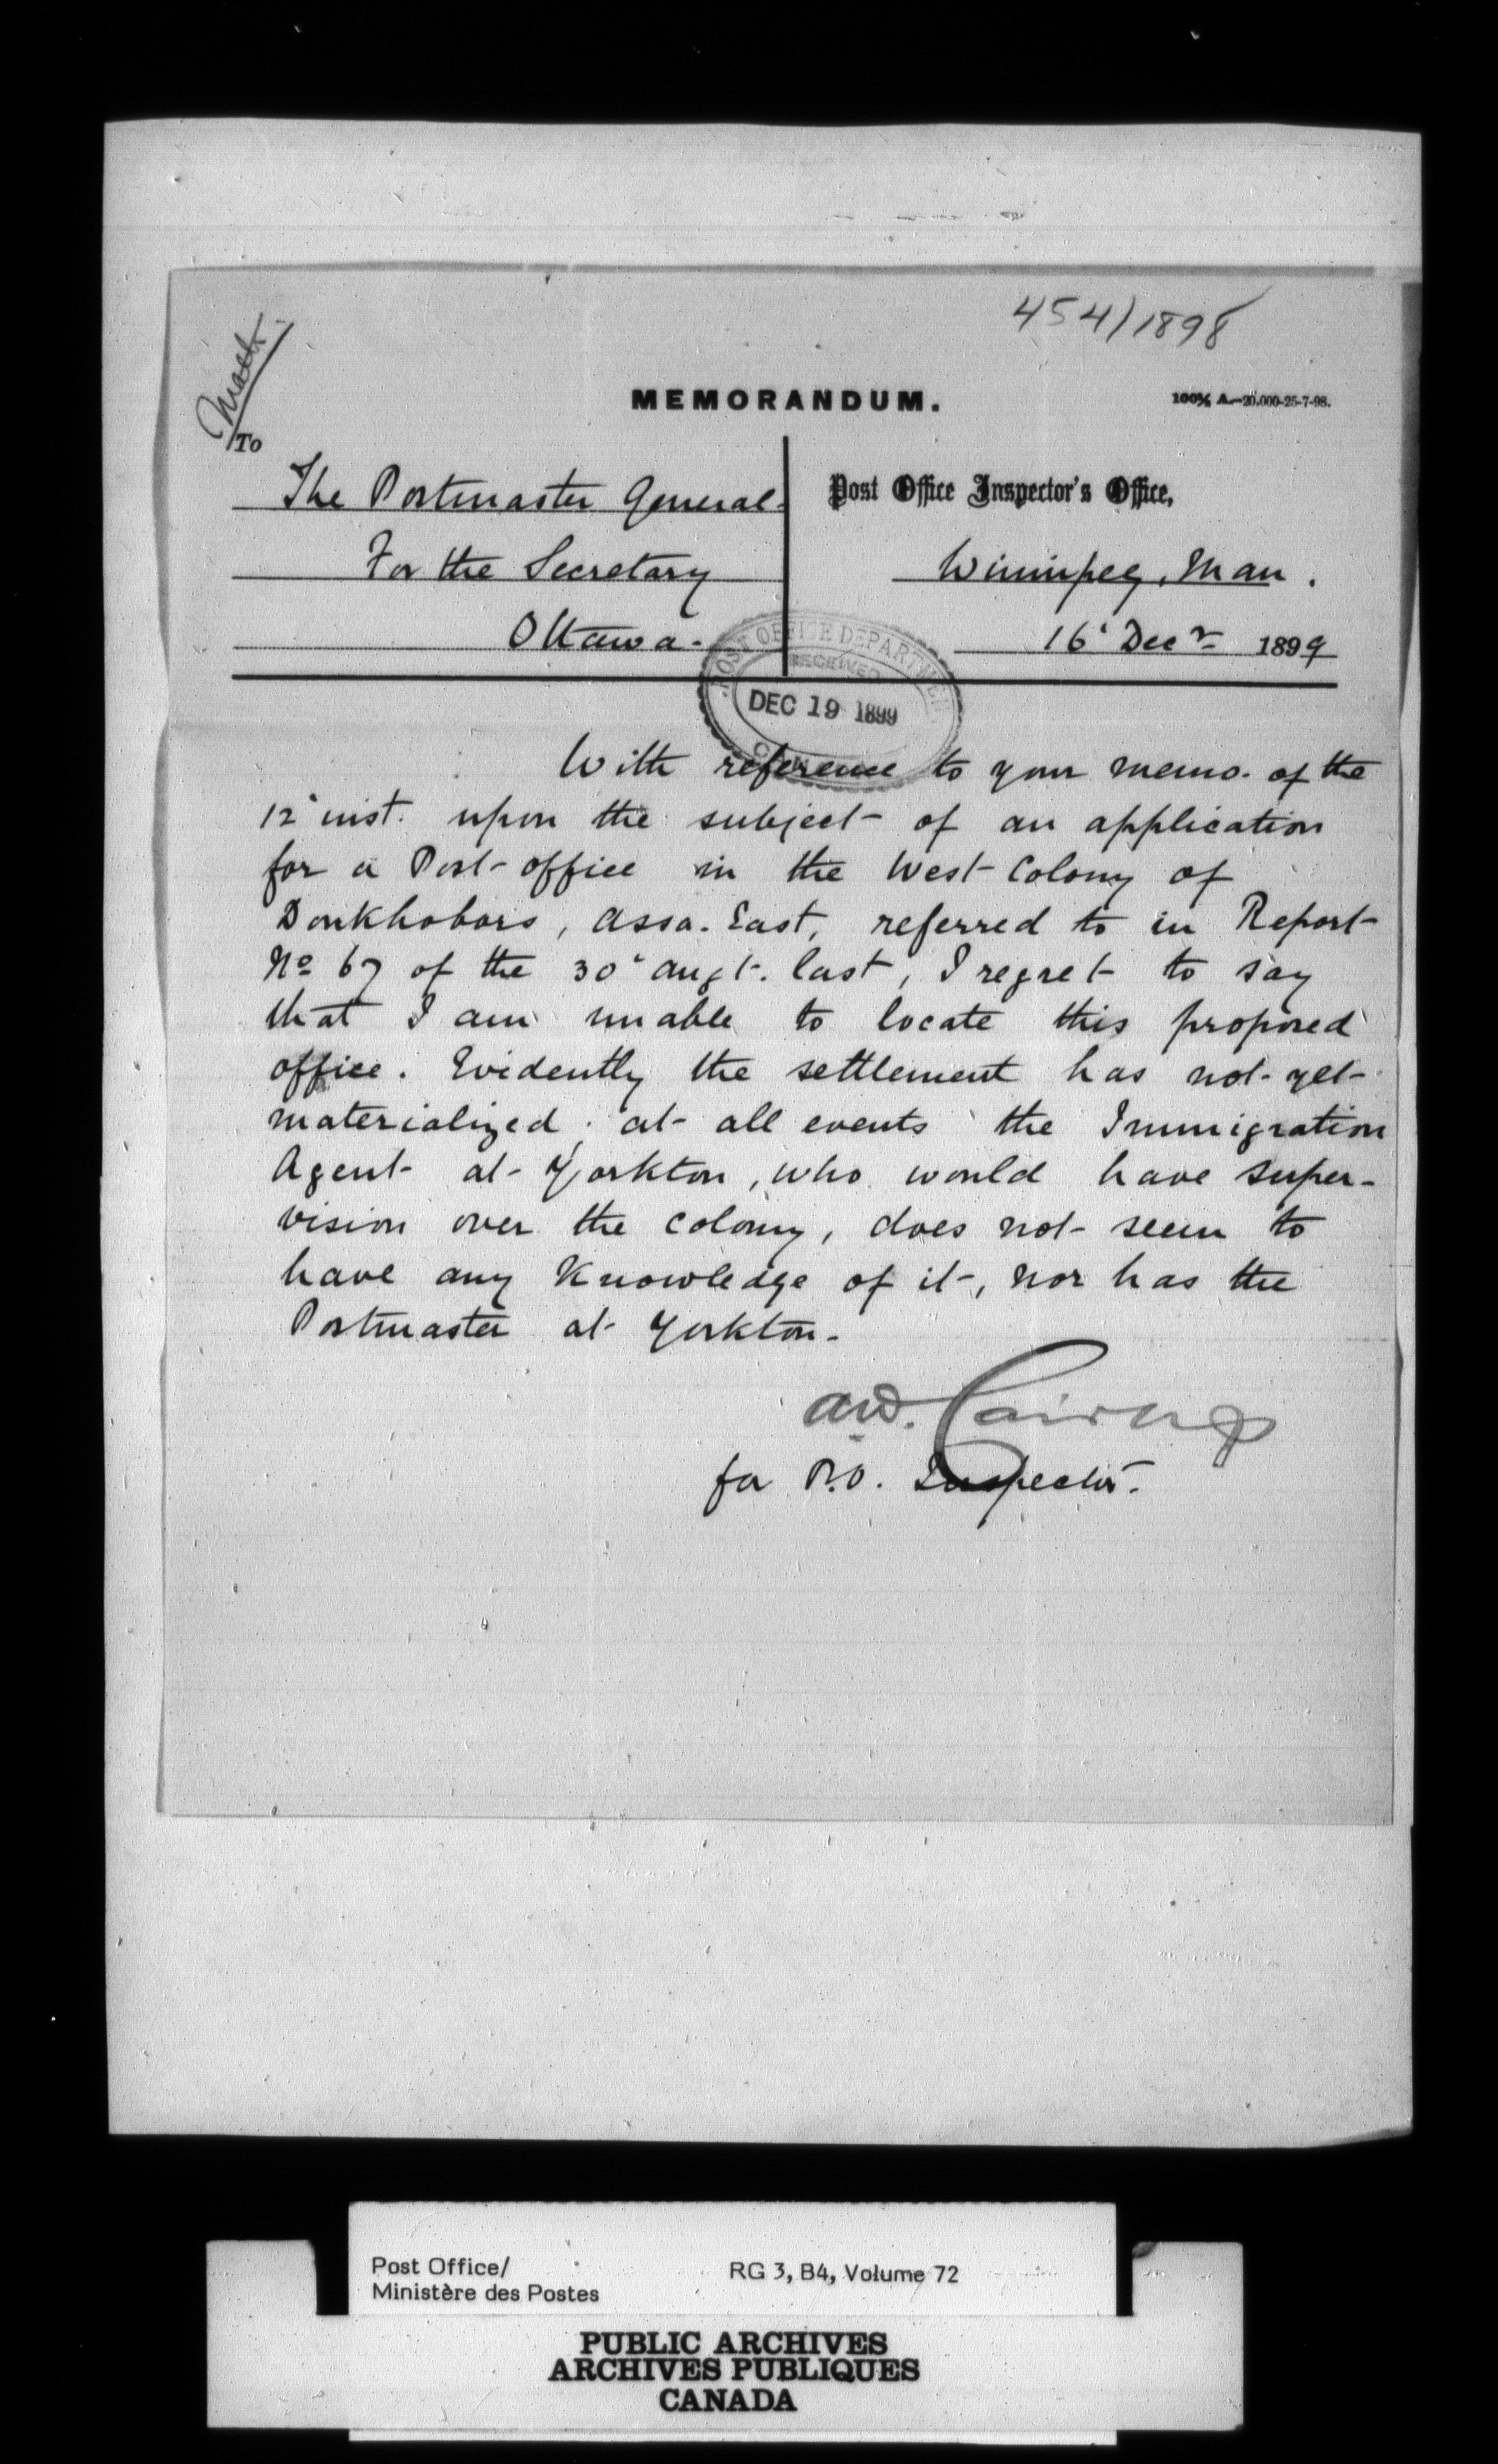 454/1898
MEMORANDUM.
100½ A.—20,000-25-7-98.
To
The Postmaster General.
Post Office Inspector's Office,
For the Secretary
Winnipeg, Man.
Ottawa.
16' Decr 1899
POST OFFICE DEPARTMENT
RECEIVED
DEC 19 1899
With reference to your memo. of the
12' inst. upon the subject of an application
for a Post-office in the West Colony of
Doukhobors, Assa. East, referred to in Report
No 67 of the 30' Augt. last, I regret to say
that I am unable to locate this proposed
office. Evidently the settlement has not yet
materialized; at all events the Immigration
Agent at Yorkton, who would have super-
vision over the colony, does not seem to
have any knowledge of it, nor has the
Postmaster at Yorkton.
AW. Cairns
for P.O. Inspector.
Post Office/
Ministère des Postes
RG 3, B4, Volume 72
PUBLIC ARCHIVES
ARCHIVES PUBLIQUES
CANADA